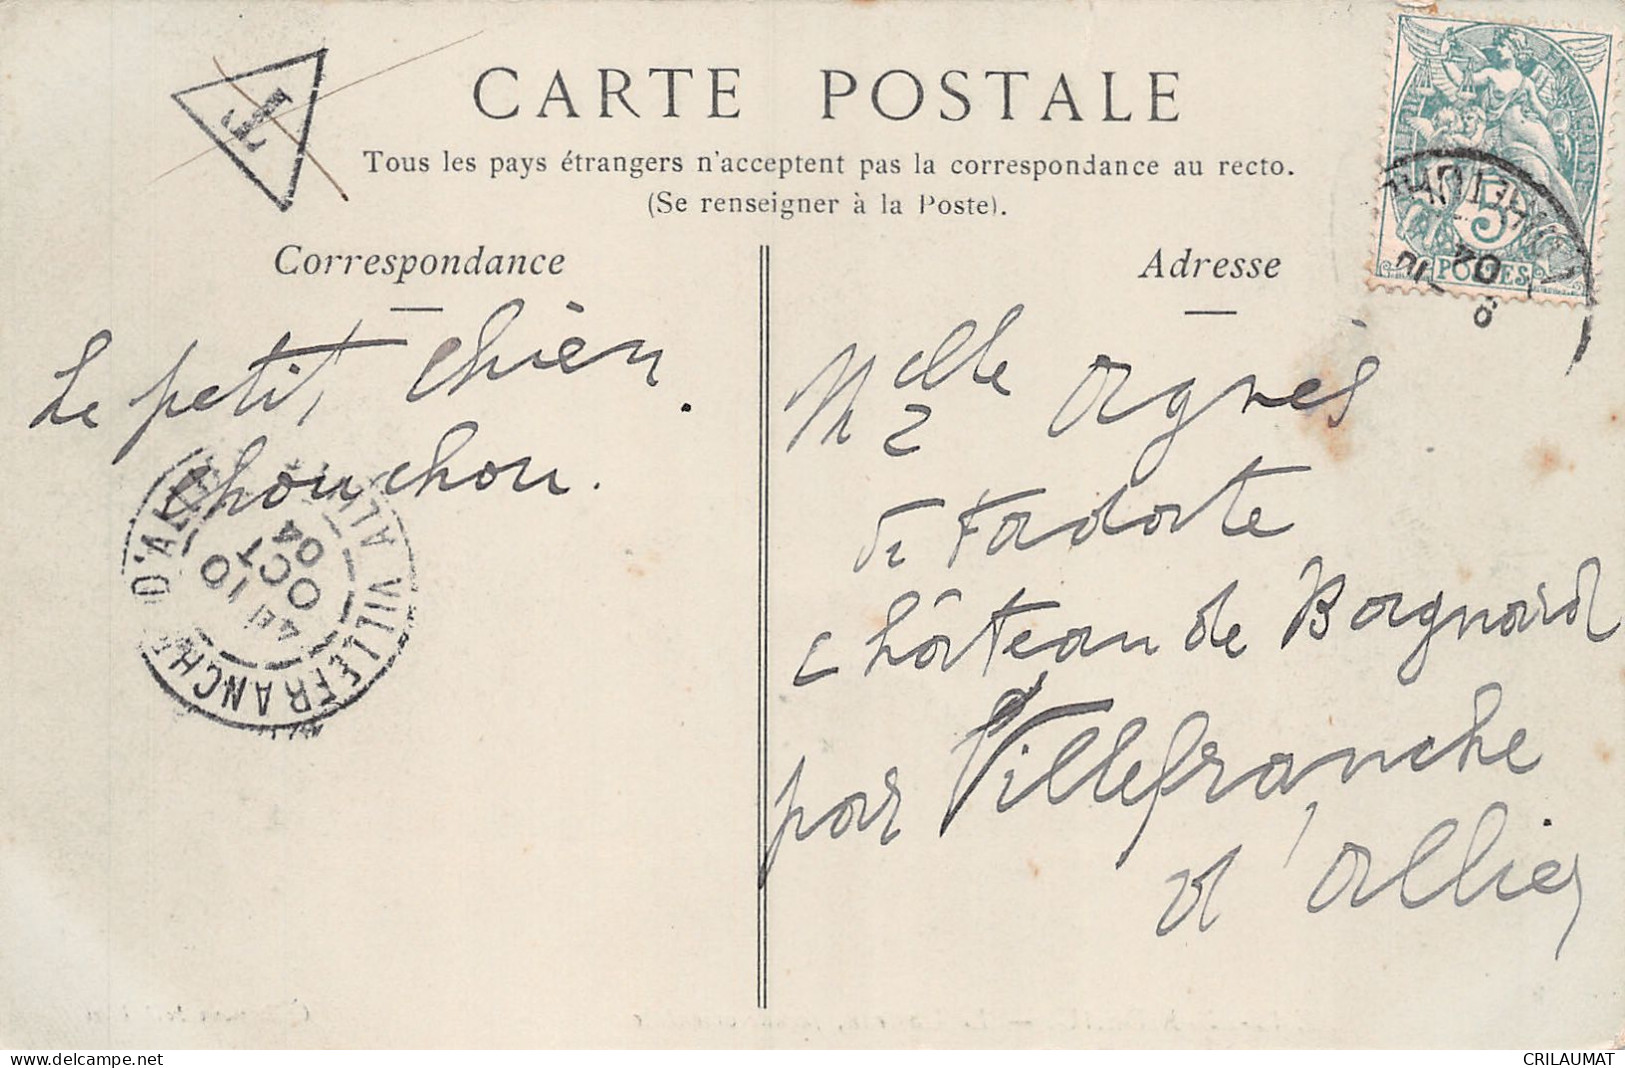 T
CARTE POSTALE
Tous les pays étrangers n'acceptent pas la correspondance au recto.
(Se renseigner à la Poste).
Correspondance
Le petit chien
chouchou.
Adresse
Melle Agnès
de
château de Bagnard
par Villefranche
d'Allier
5
POSTES
VILLEFRANCHE D'ALLIER
10
OCT
04
ALLIER
delcampe.net
CRILAUMAT